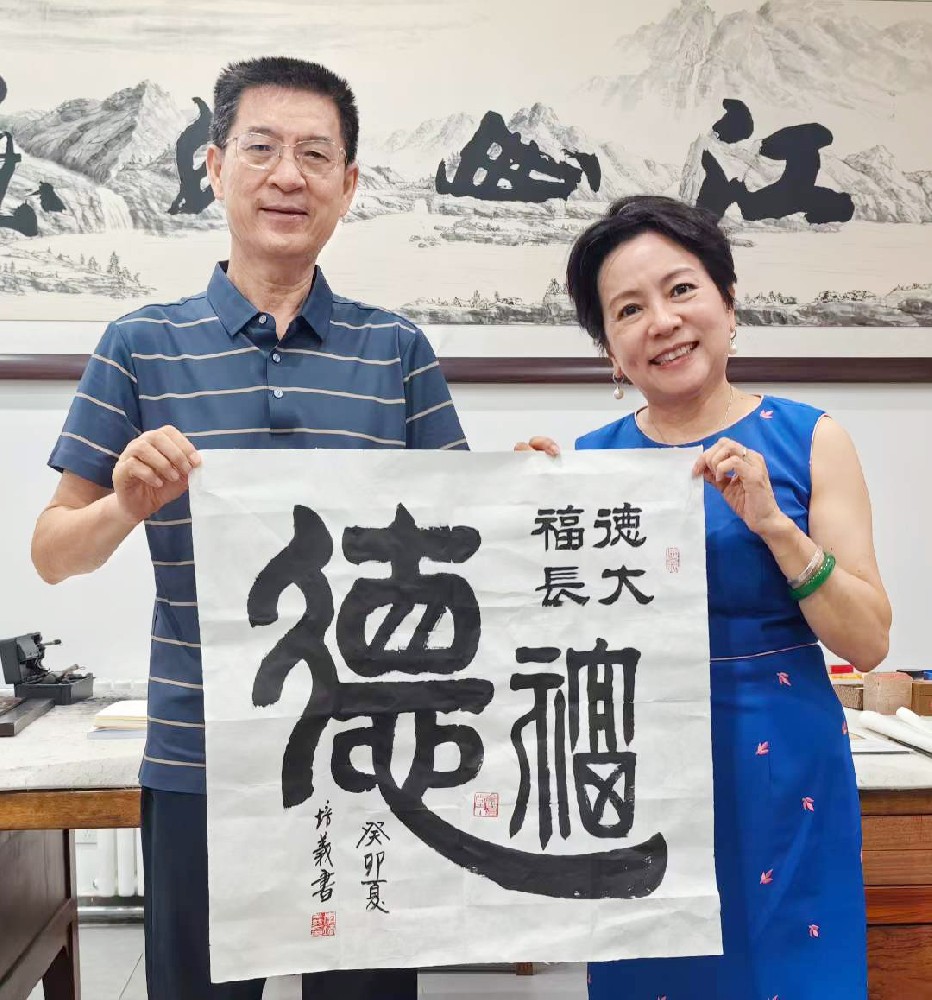 江山
德大
福長
福
德
癸卯夏
培義書